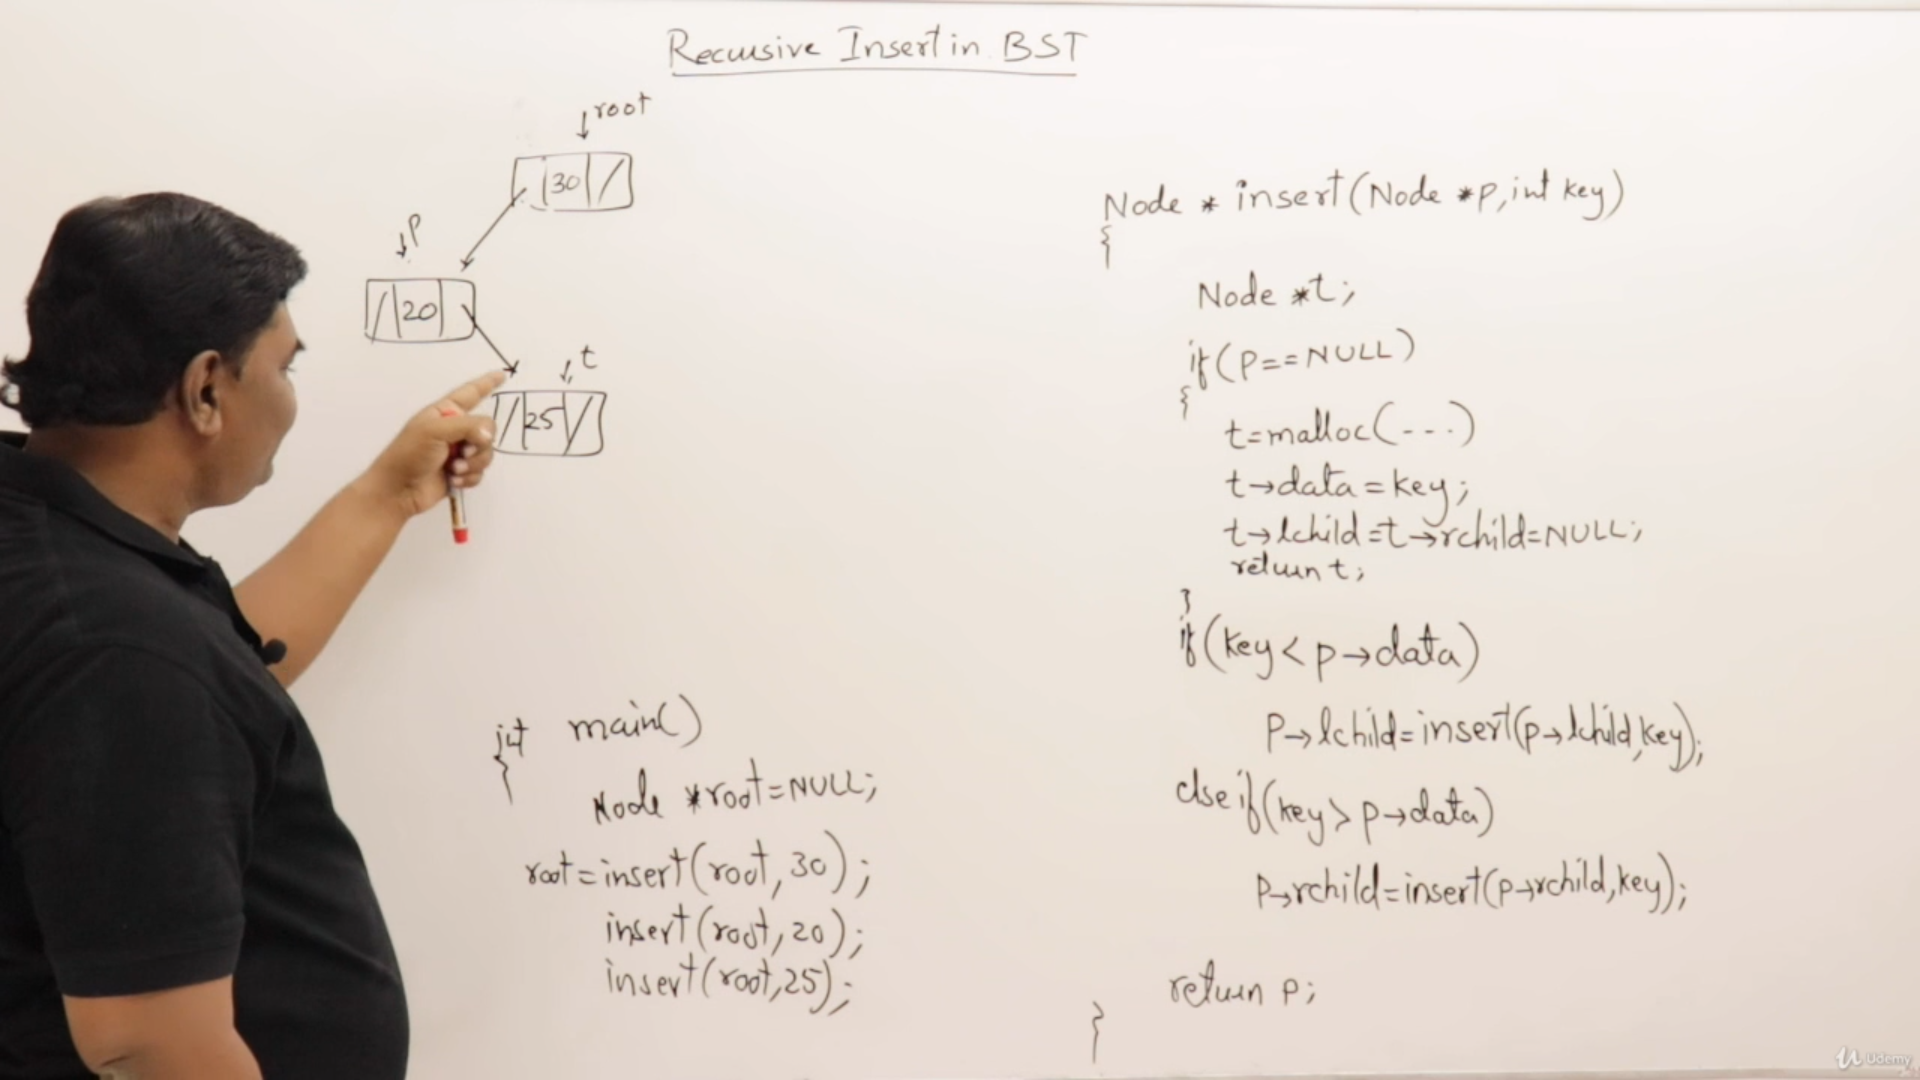 Recursive Insert in BST
root
30
p
20
t
25
int main()
{
Node *root=NULL;
root=insert(root,30);
insert(root,20);
insert(root,25);
Node * insert(Node *p,int key)
{
Node *t;
if(p==NULL)
{
t=malloc(---)
t→data=key;
t→lchild=t→rchild=NULL;
return t;
}
if(key<p→data)
p→lchild=insert(p→lchild,key);
else if(key>p→data)
p→rchild=insert(p→rchild,key);
return p;
}
Udemy